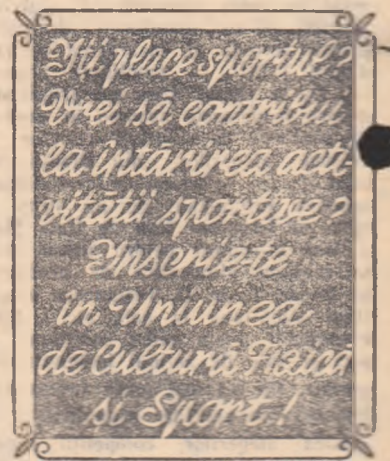 Iti place sportul?
Vrei să contribui
la întărirea acti-
vității sportive?
Inscrie-te
în Uniunea
de Cultură Fizică
și Sport!